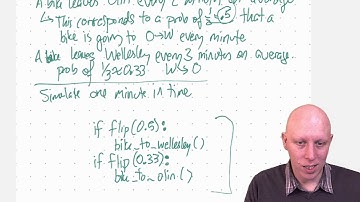 A bike leaves Olin every 2 minutes on average
↳ This corresponds to a prob of 1/2 = 0.5 that a
bike is going to O→W every minute
A bike leaves Wellesley every 3 minutes on average.
prob of 1/3 ≈ 0.33 W→O
Simulate one minute in time
if flip(0.5):
bike_to_wellesley()
if flip(0.33):
bike_to_olin()